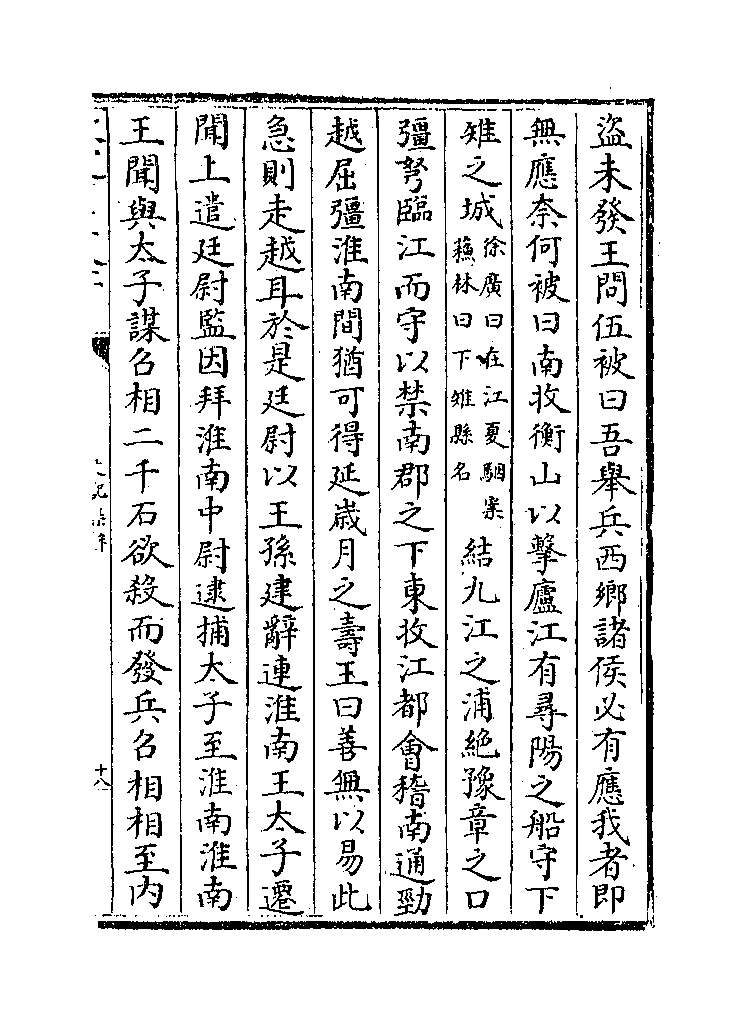 盜未發王問伍被曰吾舉兵西鄉諸侯必有應我者即
無應奈何被曰南收衡山以擊廬江有尋陽之船守下
雉之城
徐廣曰在江夏駰案
蘇林曰下雉縣名
結九江之浦絶豫章之口
彊弩臨江而守以禁南郡之下東收江都會稽南通勁
越屈彊淮南間猶可得延歲月之壽王曰善無以易此
急則走越耳於是廷尉以王孫建辭連淮南王太子遷
聞上遣廷尉監因拜淮南中尉逮捕太子至淮南淮南
王聞與太子謀召相二千石欲殺而發兵召相相至內
十八